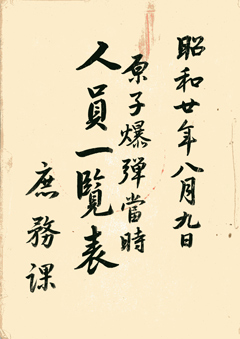 昭和廿年八月九日
原子爆弾當時
人員一覧表
庶務課